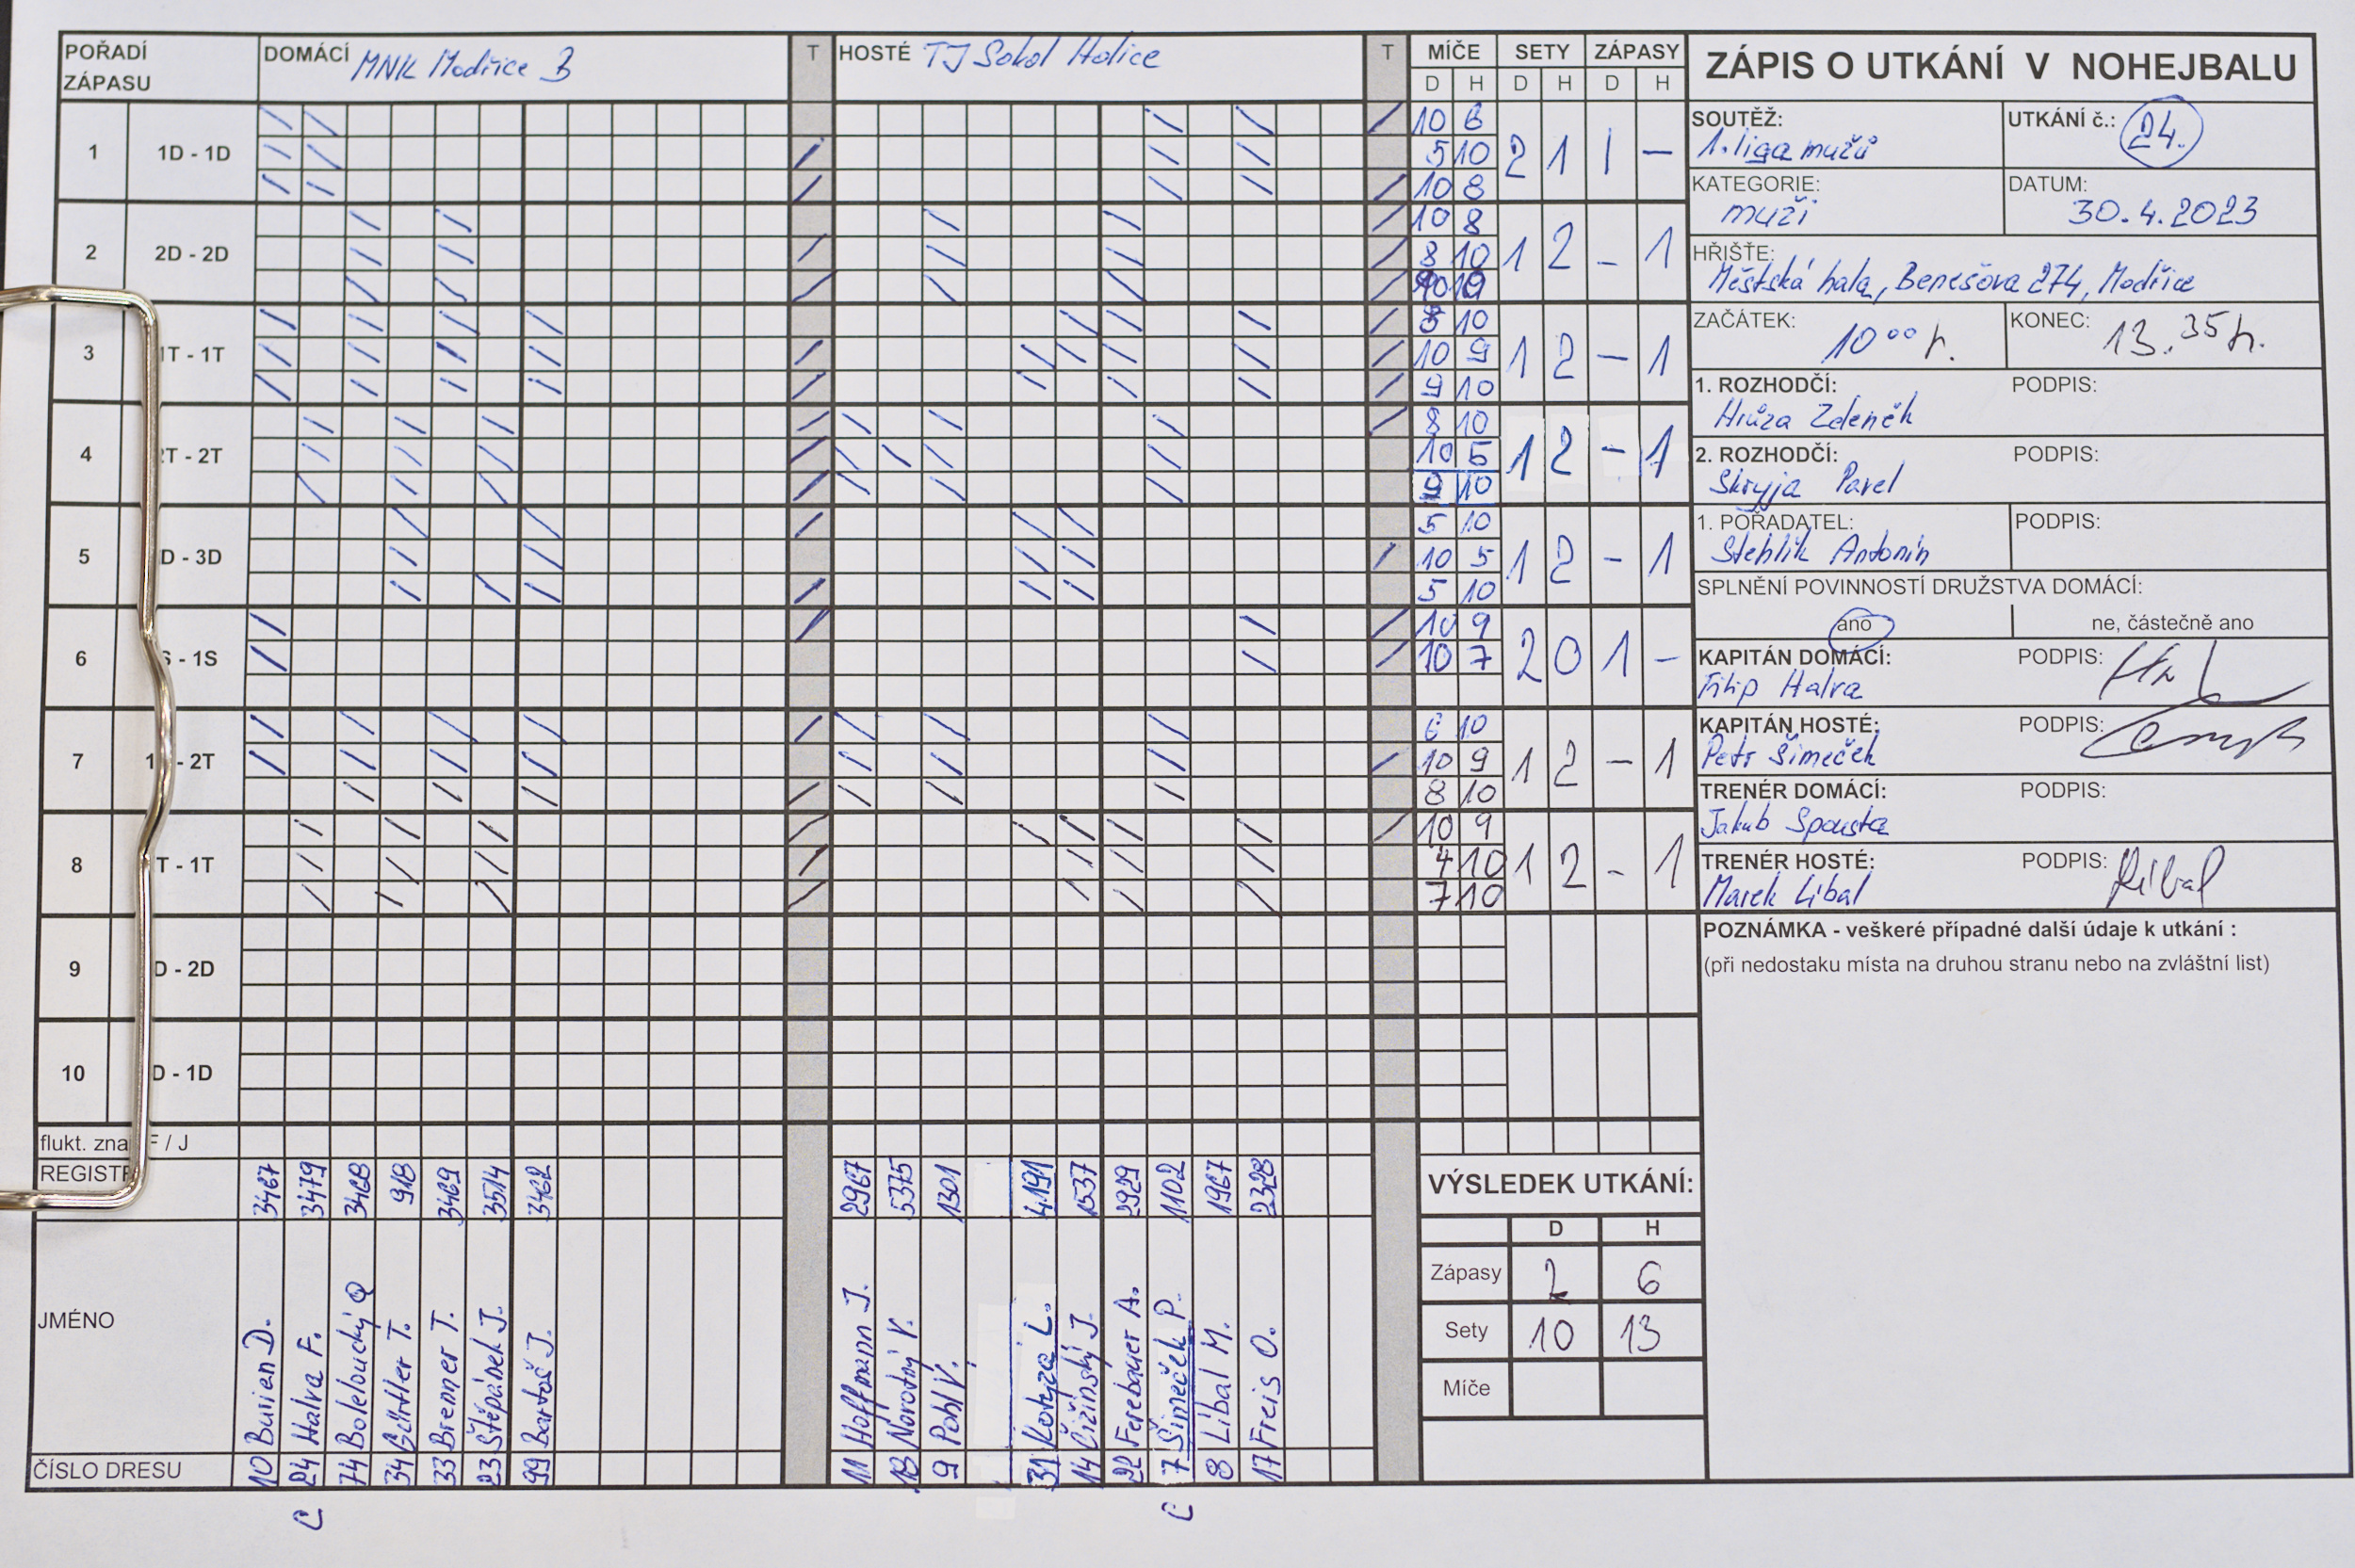 POŘADÍ ZÁPASU DOMÁCÍ MNK Modřice B T HOSTÉ TJ Sokol Holice T MÍČE SETY ZÁPASY
D H D H D H
1 1D - 1D 10 6 2 1 1 –
5 10
10 8
2 2D - 2D 10 8 1 2 – 1
8 10
10
3 1T - 1T 5 10 1 2 – 1
10 9
9 10
4 2T - 2T 8 10 1 2 – 1
10 5
9 10
5 D - 3D 5 10 1 2 – 1
10 5
5 10
6 S - 1S 10 9 2 0 1 –
10 7
7 1 - 2T 6 10 1 2 – 1
10 9
8 10
8 T - 1T 10 9 1 2 – 1
4 10
7 10
9 D - 2D
10 D - 1D
flukt. zna F / J
REGISTR 3467 3479 3468 918 3469 3514 3462 2967 5375 1301 4191 1537 2929 1102 1967 2328
JMÉNO Burian D. Halva F. Boleloucký O Gürtler T. Bremner T. Štěpánek J. Bartoš J. Hoffmann J. Novotný V. Pohl V. Kotyza L. Čižinský J. Ferebauer A. Šimeček P. Libal M. Freis O.
ČÍSLO DRESU 10 24 74 34 33 23 99 11 18 9 31 14 22 7 8 17
C C
ZÁPIS O UTKÁNÍ V NOHEJBALU
SOUTĚŽ: UTKÁNÍ č.: 24.
1. liga mužů
KATEGORIE: DATUM:
muži 30.4.2023
HŘIŠTĚ:
Městská hala, Benešova 274, Modřice
ZAČÁTEK: 10 00 h. KONEC: 13.35 h.
1. ROZHODČÍ: PODPIS:
Hrůza Zdeněk
2. ROZHODČÍ: PODPIS:
Skryja Pavel
1. POŘADATEL: PODPIS:
Stehlík Antonín
SPLNĚNÍ POVINNOSTÍ DRUŽSTVA DOMÁCÍ:
ano ne, částečně ano
KAPITÁN DOMÁCÍ: PODPIS:
Filip Halva
KAPITÁN HOSTÉ: PODPIS:
Petr Šimeček
TRENÉR DOMÁCÍ: PODPIS:
Jakub Spousta
TRENÉR HOSTÉ: PODPIS: Libal
Marek Libal
POZNÁMKA - veškeré případné další údaje k utkání :
(při nedostaku místa na druhou stranu nebo na zvláštní list)
VÝSLEDEK UTKÁNÍ:
D H
Zápasy 2 6
Sety 10 13
Míče